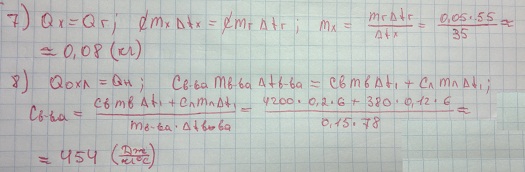 7) Qх = Qг; c̸ mх Δtх = c̸ mг Δtг; mх = mгΔtг / Δtх = 0,05·55 / 35 ≈
≈ 0,08 (кг)
8) Qохл = Qн; Cв-ва mв-ва Δtв-ва = Cв mв Δt₁ + Cл mл Δt₁;
Cв-ва = Cв mв Δt₁ + Cл mл Δt₁ / mв-ва · Δtв-ва = 4200·0,2·6 + 380·0,12·6 / 0,15·78 ≈
≈ 454 (Дж / кг°C)